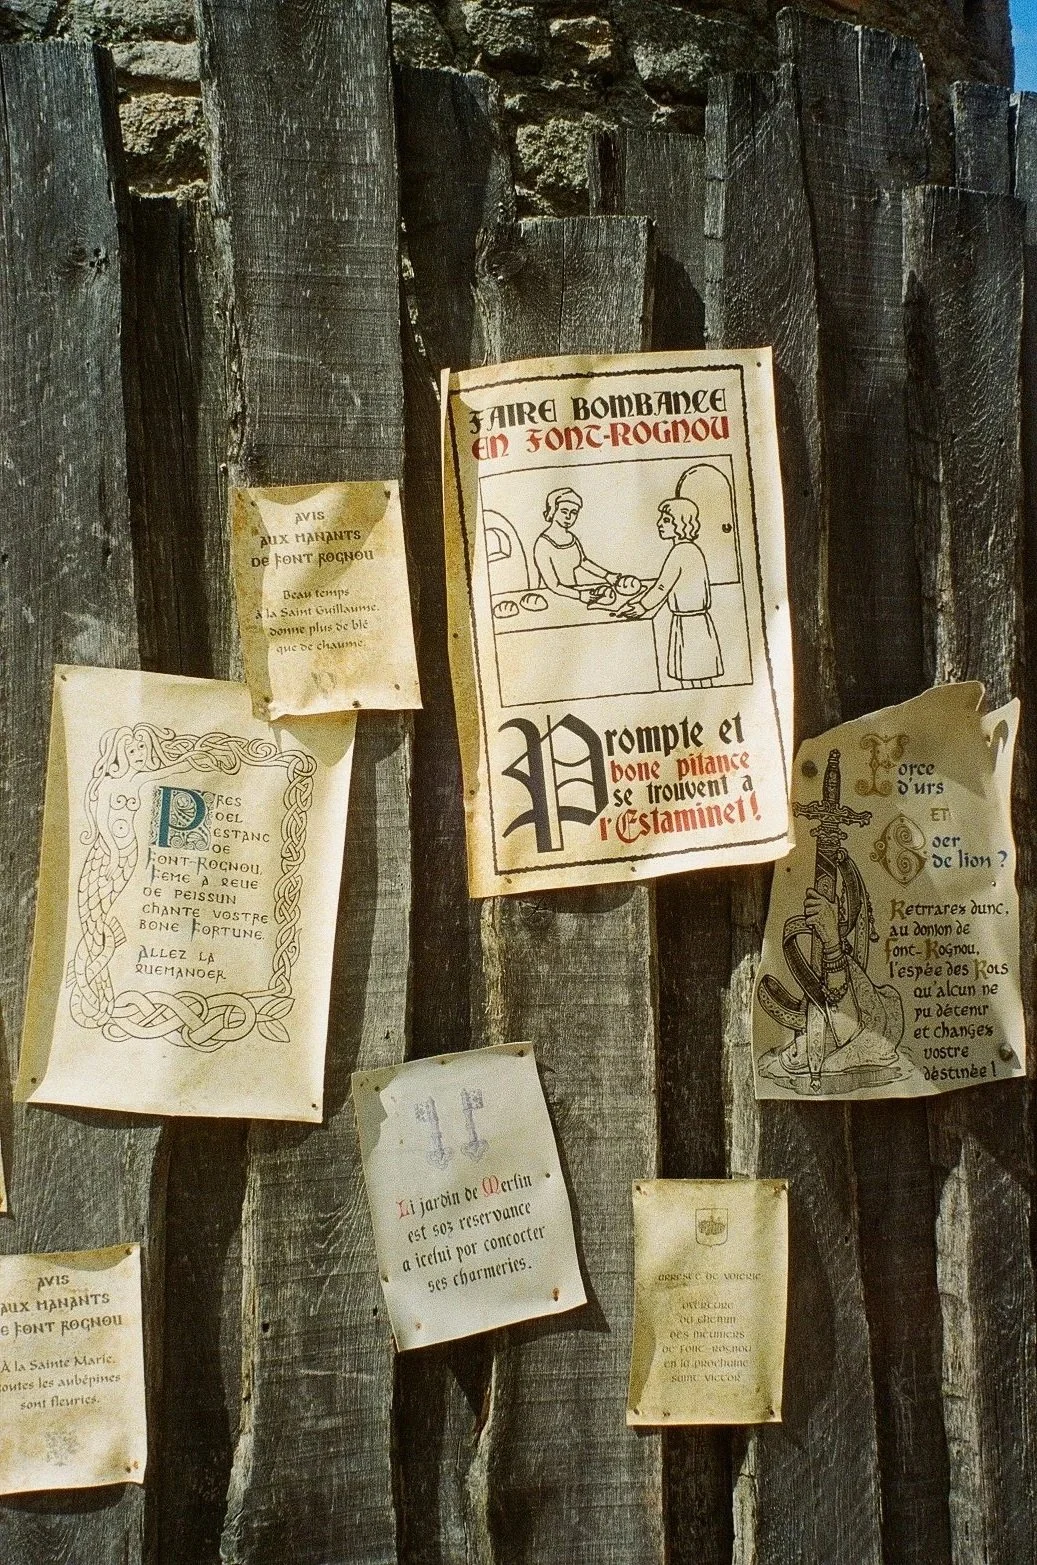 FAIRE BOMBANCE
EN FONT-ROGNOU
Prompte et
bone pitance
se trouvent a
l'Estaminet !
AVIS
AUX MANANTS
DE FONT ROGNOU
Beau temps
à la Saint Guillaume,
donne plus de blé
que de chaume.
PRES
DEL
ESTANC
DE
FONT-ROGNOU,
FEME A QEUE
DE PEISSUN
CHANTE VOSTRE
BONE FORTUNE.
ALLEZ LA
QUEMANDER
Force
d'urs
ET
Coer
de lion ?
Retrarez dunc,
au donjon de
Font-Rognou,
l'espée des Rois
qu'alcun ne
pu détenir
et changez
vostre
déstinée !
Li jardin de Merlin
est soz reservance
a icelui por concocter
ses charmeries.
ARRESET DE VOIERIE
OVERTURE
DU CHEMIN
DES MEUNIERS
DE FONT-ROGNOU
EN LA PROCHAINE
SAINT VICTOR
AVIS
AUX MANANTS
E FONT ROGNOU
À la Sainte Marie,
toutes les aubépines
sont fleuries.